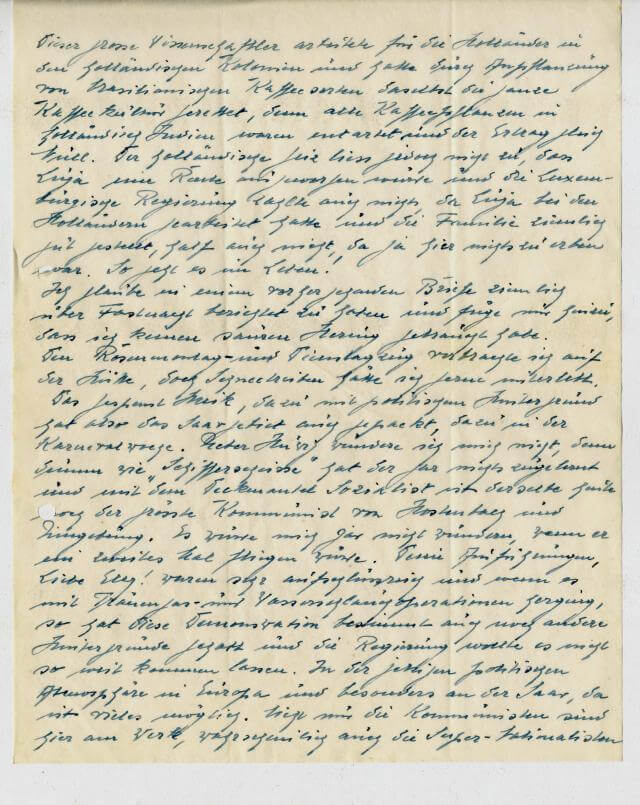 Dieser grosse Wissenschaftler arbeitete für die Holländer in
den holländischen Kolonien und hatte durch Anpflanzung
von brasilianischen Kaffeesorten daselbst die ganze
Kaffeekultur gerettet, denn alle Kaffeepflanzen in
Holländisch Indien waren entartet und der Ertrag gleich
Null. Der holländische Geiz liess jedoch nicht zu, dass
Luja eine Rente ausgeworfen würde und die Luxem-
burgische Regierung zahlte auch nichts da Luja bei den
Holländern gearbeitet hatte und die Familie ziemlich
gut gestellt, half auch nicht, da ja hier nichts zu erben
war. So geht es im Leben!
Ich glaube in einem vorhergehenden Briefe ziemlich
über Fastnacht berichtet zu haben und füge nur hinzu,
dass ich keinen sauren Hering gebraucht habe.
Den Rosenmontag- und Dienstagzug verbrachte ich auf
der Hütte, doch Schneetreiben hätte ich gerne miterlebt.
Das Streik, dazu mit politischem Hintergrund
hat also das Saargebiet auch gepackt, dazu in der
Karnevalwoche. Peter wundere ich mich nicht, denn
dumm wie "Schifferscheisse" hat der gar nichts zugelernt
und mit dem Deckmantel Sozialist ist derselbe heute
noch der grösste Kommunist von Hostenbach und
Umgebung. Es würde mich gar nicht wundern, wenn er
ein zweites Mal fliegen würde. Deine Ausführungen,
Liebe Elly! waren sehr aufschlussreich und wenn es
mit Tränengas- und Wasserschlauchoperationen herging,
so hat diese Demonstration bestimmt auch noch andere
Hintergründe gehabt und die Regierung wollte es nicht
so weit kommen lassen. In der jetzigen politischen
Atmosphäre in Europa und besonders an der Saar, da
ist vieles möglich. Nicht nur die Kommunisten sind
hier am Werk, wahrscheinlich auch die Super-Nationalisten